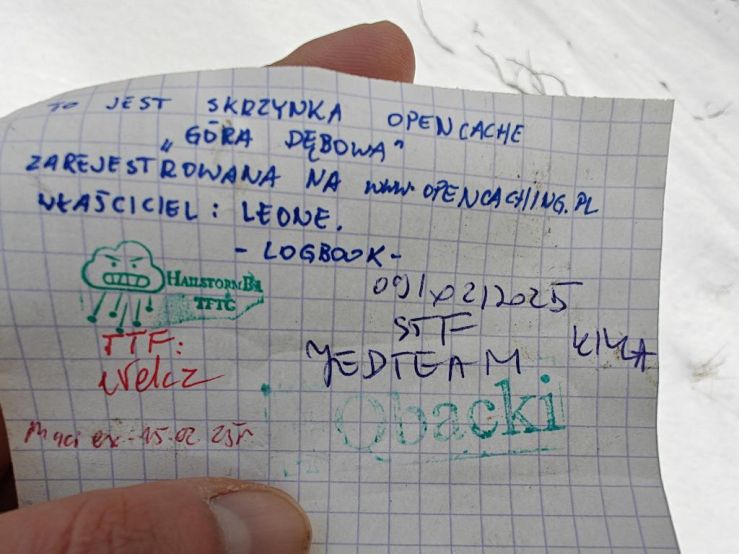 TO JEST SKRZYNKA OPENCACHE
„GÓRA DĘBOWA"
ZAREJESTROWANA NA www.OPENCACHING.PL
WŁAŚCICIEL: LEONE.
- LOGBOOK -
HAILSTORMBA
TFTC
09/02/2025
STF
YEDTEAM
TTF:
Welcz
Qbacki
Maciex 15.02.25r